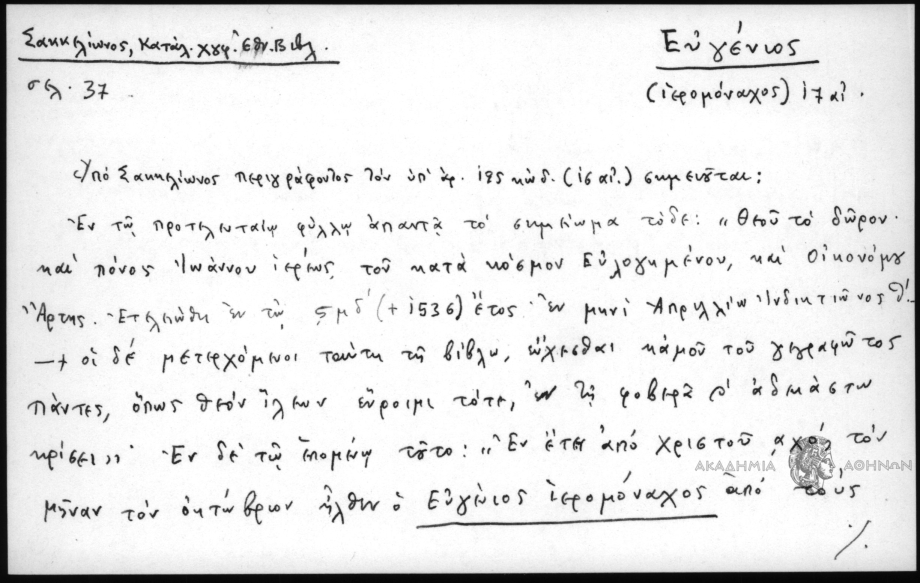 Σακκελίωνος, Κατάλ. χφ. Ἐθν. Βιβλ.
Εὐγένιος
σελ. 37
(ἱερομόναχος) 17 αἰ.
Ὑπό Σακκελίωνος περιγράφοντος τόν ὑπ' ἀρ. 195 κώδ. (16 αἰ.) σημειοῦται:
Ἐν τῷ προτελευταίῳ φύλλῳ ἀπαντᾷ τό σημείωμα τόδε: „Θεοῦ τό δῶρον.
καί πόνος Ἰωάννου ἱερέως, τοῦ κατά κόσμον Εὐλογημένου, καί Οἰκονόμου
Ἄρτης. Ἐτελειώθη ἐν τῷ ͵ζμδ΄ (+ 1536) ἔτος ἐν μηνί Ἀπριλλίῳ Ἰνδικτιῶνος θ΄.
—+ οἱ δέ μετερχόμενοι ταύτη τῇ βίβλω, εὔχεσθαι κἀμοῦ τοῦ γεγραφῶτος
πάντες, ὅπως θεόν ἵλεων εὕροιμι τότε, ἐν τῇ φοβερᾷ ἀδεκάστω
κρίσει". Ἐν δέ τῷ ἑπομένῳ τοῦτο: „Ἐν ἔτει ἀπό Χριστοῦ τόν
μῆναν τόν ὀκτώβριον ἦλθεν ὁ Εὐγένιος ἱερομόναχος ἀπό τούς
./.
ΑΚΑΔΗΜΙΑ ΑΘΗΝΩΝ